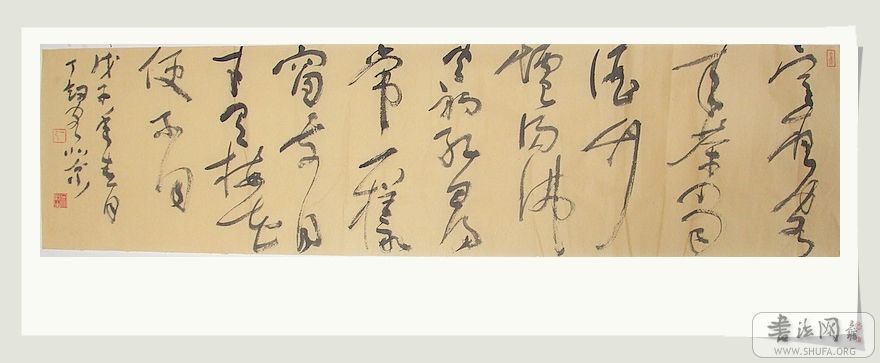 寒夜客
来茶當
酒竹
爐湯沸
火初紅尋
常一樣
窗前月
才有梅花
便不同
戊子年春月
丁 北京
書法网
WWW.SHUFA.ORG